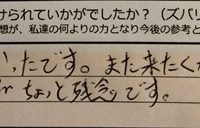 けられていかがでしたか？（ズバリ
想が、私達の何よりの力となり今後の参考と
ったです。また来たく
ちょっと残念です。